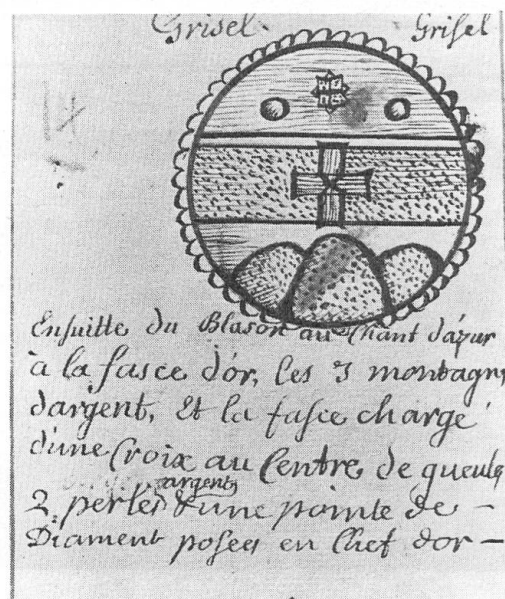 Grisel Grisel
Ensuitte du Blason au Chant d'azur
à la fasce d'or, les 3 montagnes
d'argent, Et la fasce chargé
d'une Croix au Centre de gueule
2 perles d'argent & une pointe de –
Diament posées en Chef d'or –